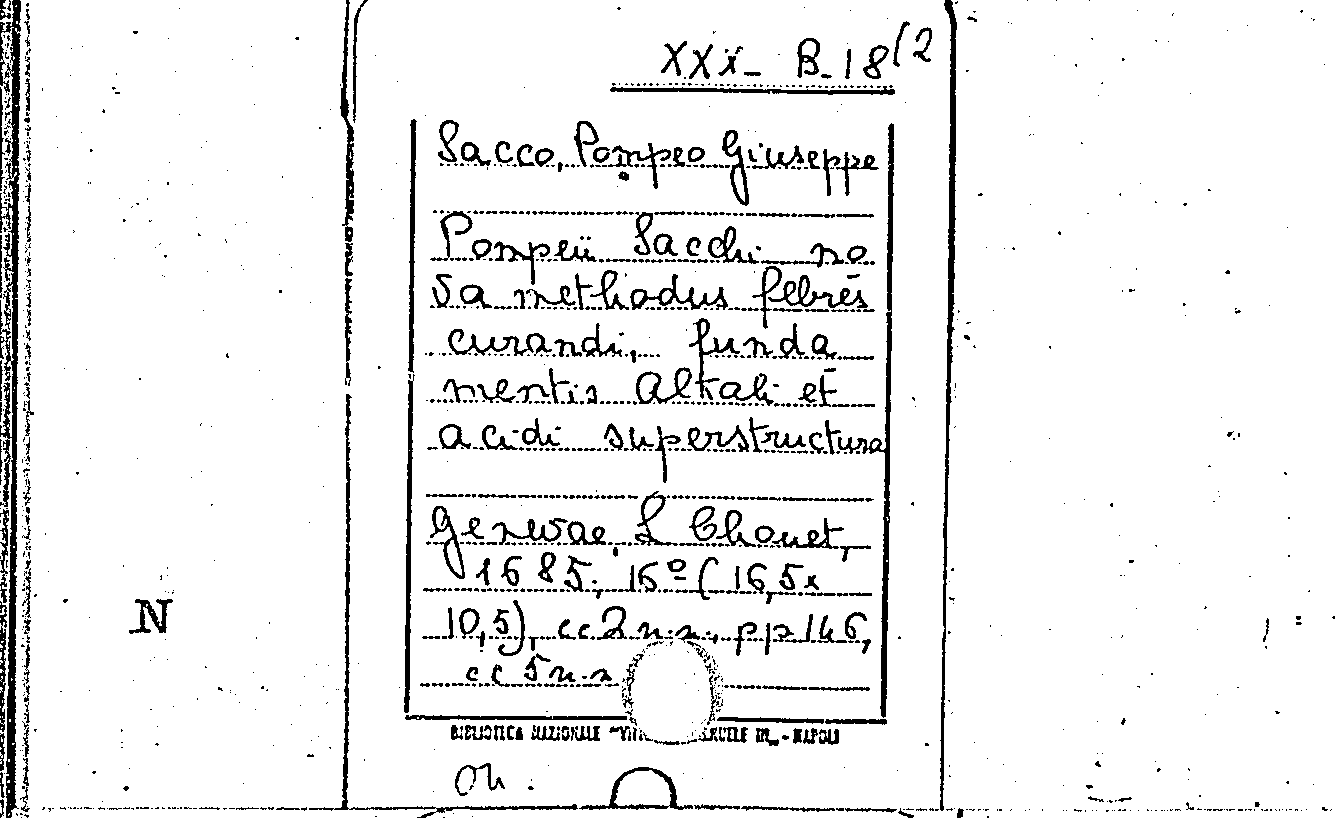 XXX- B-18(2
Sacco, Pompeo Giuseppe
Pompeii Sacchi no
va methodus febres
curandi, funda
mentis Alkali et
acidi superstructura
Genevae, L Chouet,
1685; 16º (16,5x
10,5), cc 2 n.n., pp 146,
N
cc 5 n.n
BIBLIOTECA NAZIONALE "VITT III" - NAPOLI